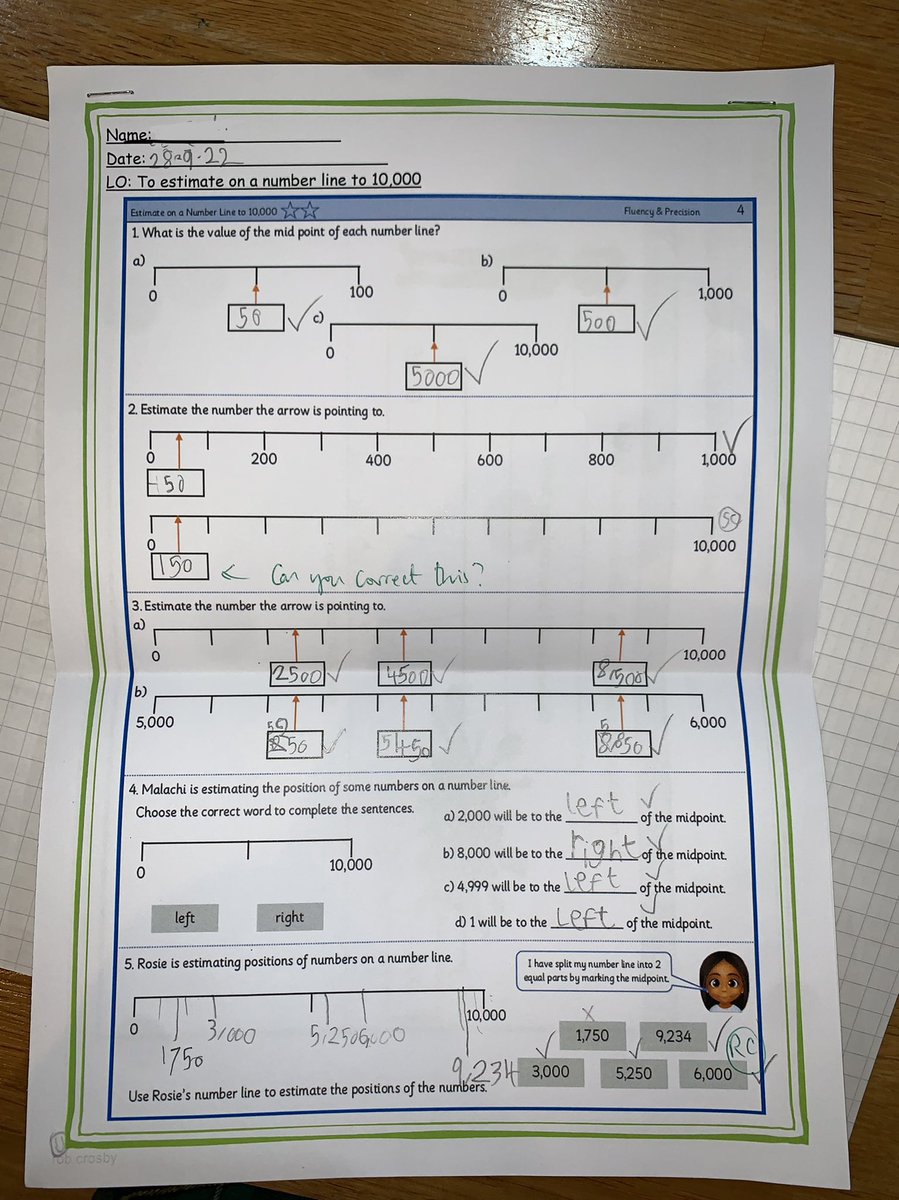 Name:
Date: 28-9-22
LO: To estimate on a number line to 10,000
Estimate on a Number Line to 10,000 Fluency & Precision 4
1. What is the value of the mid point of each number line?
a) b)
0 100 0 1,000
50 500
c)
0 10,000
5000
2. Estimate the number the arrow is pointing to.
0 200 400 600 800 1,000
50
0 10,000
150 Can you correct this?
3. Estimate the number the arrow is pointing to.
a)
0 10,000
2500 4500 8,500
b)
5,000 6,000
5450
4. Malachi is estimating the position of some numbers on a number line.
Choose the correct word to complete the sentences.
0 10,000
left right
a) 2,000 will be to the left of the midpoint.
b) 8,000 will be to the right of the midpoint.
c) 4,999 will be to the left of the midpoint.
d) 1 will be to the left of the midpoint.
5. Rosie is estimating positions of numbers on a number line.
I have split my number line into 2
equal parts by marking the midpoint.
0 10,000
3,000 5,250 6,000
1750
9,234
1,750 9,234
RC
3,000 5,250 6,000
Use Rosie's number line to estimate the positions of the numbers.
crosby